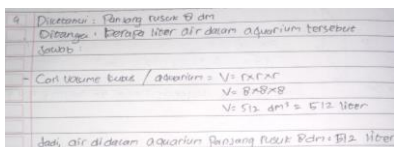 9 Diketahui : Panjang rusuk 8 dm
Ditanya : Berapa liter air dalam aquarium tersebut
Jawab :
- Cari volume kubus / aquarium = V = r×r×r
V = 8×8×8
V = 512 dm³ = 512 liter
Jadi, air didalam aquarium panjang rusuk 8dm = 512 liter